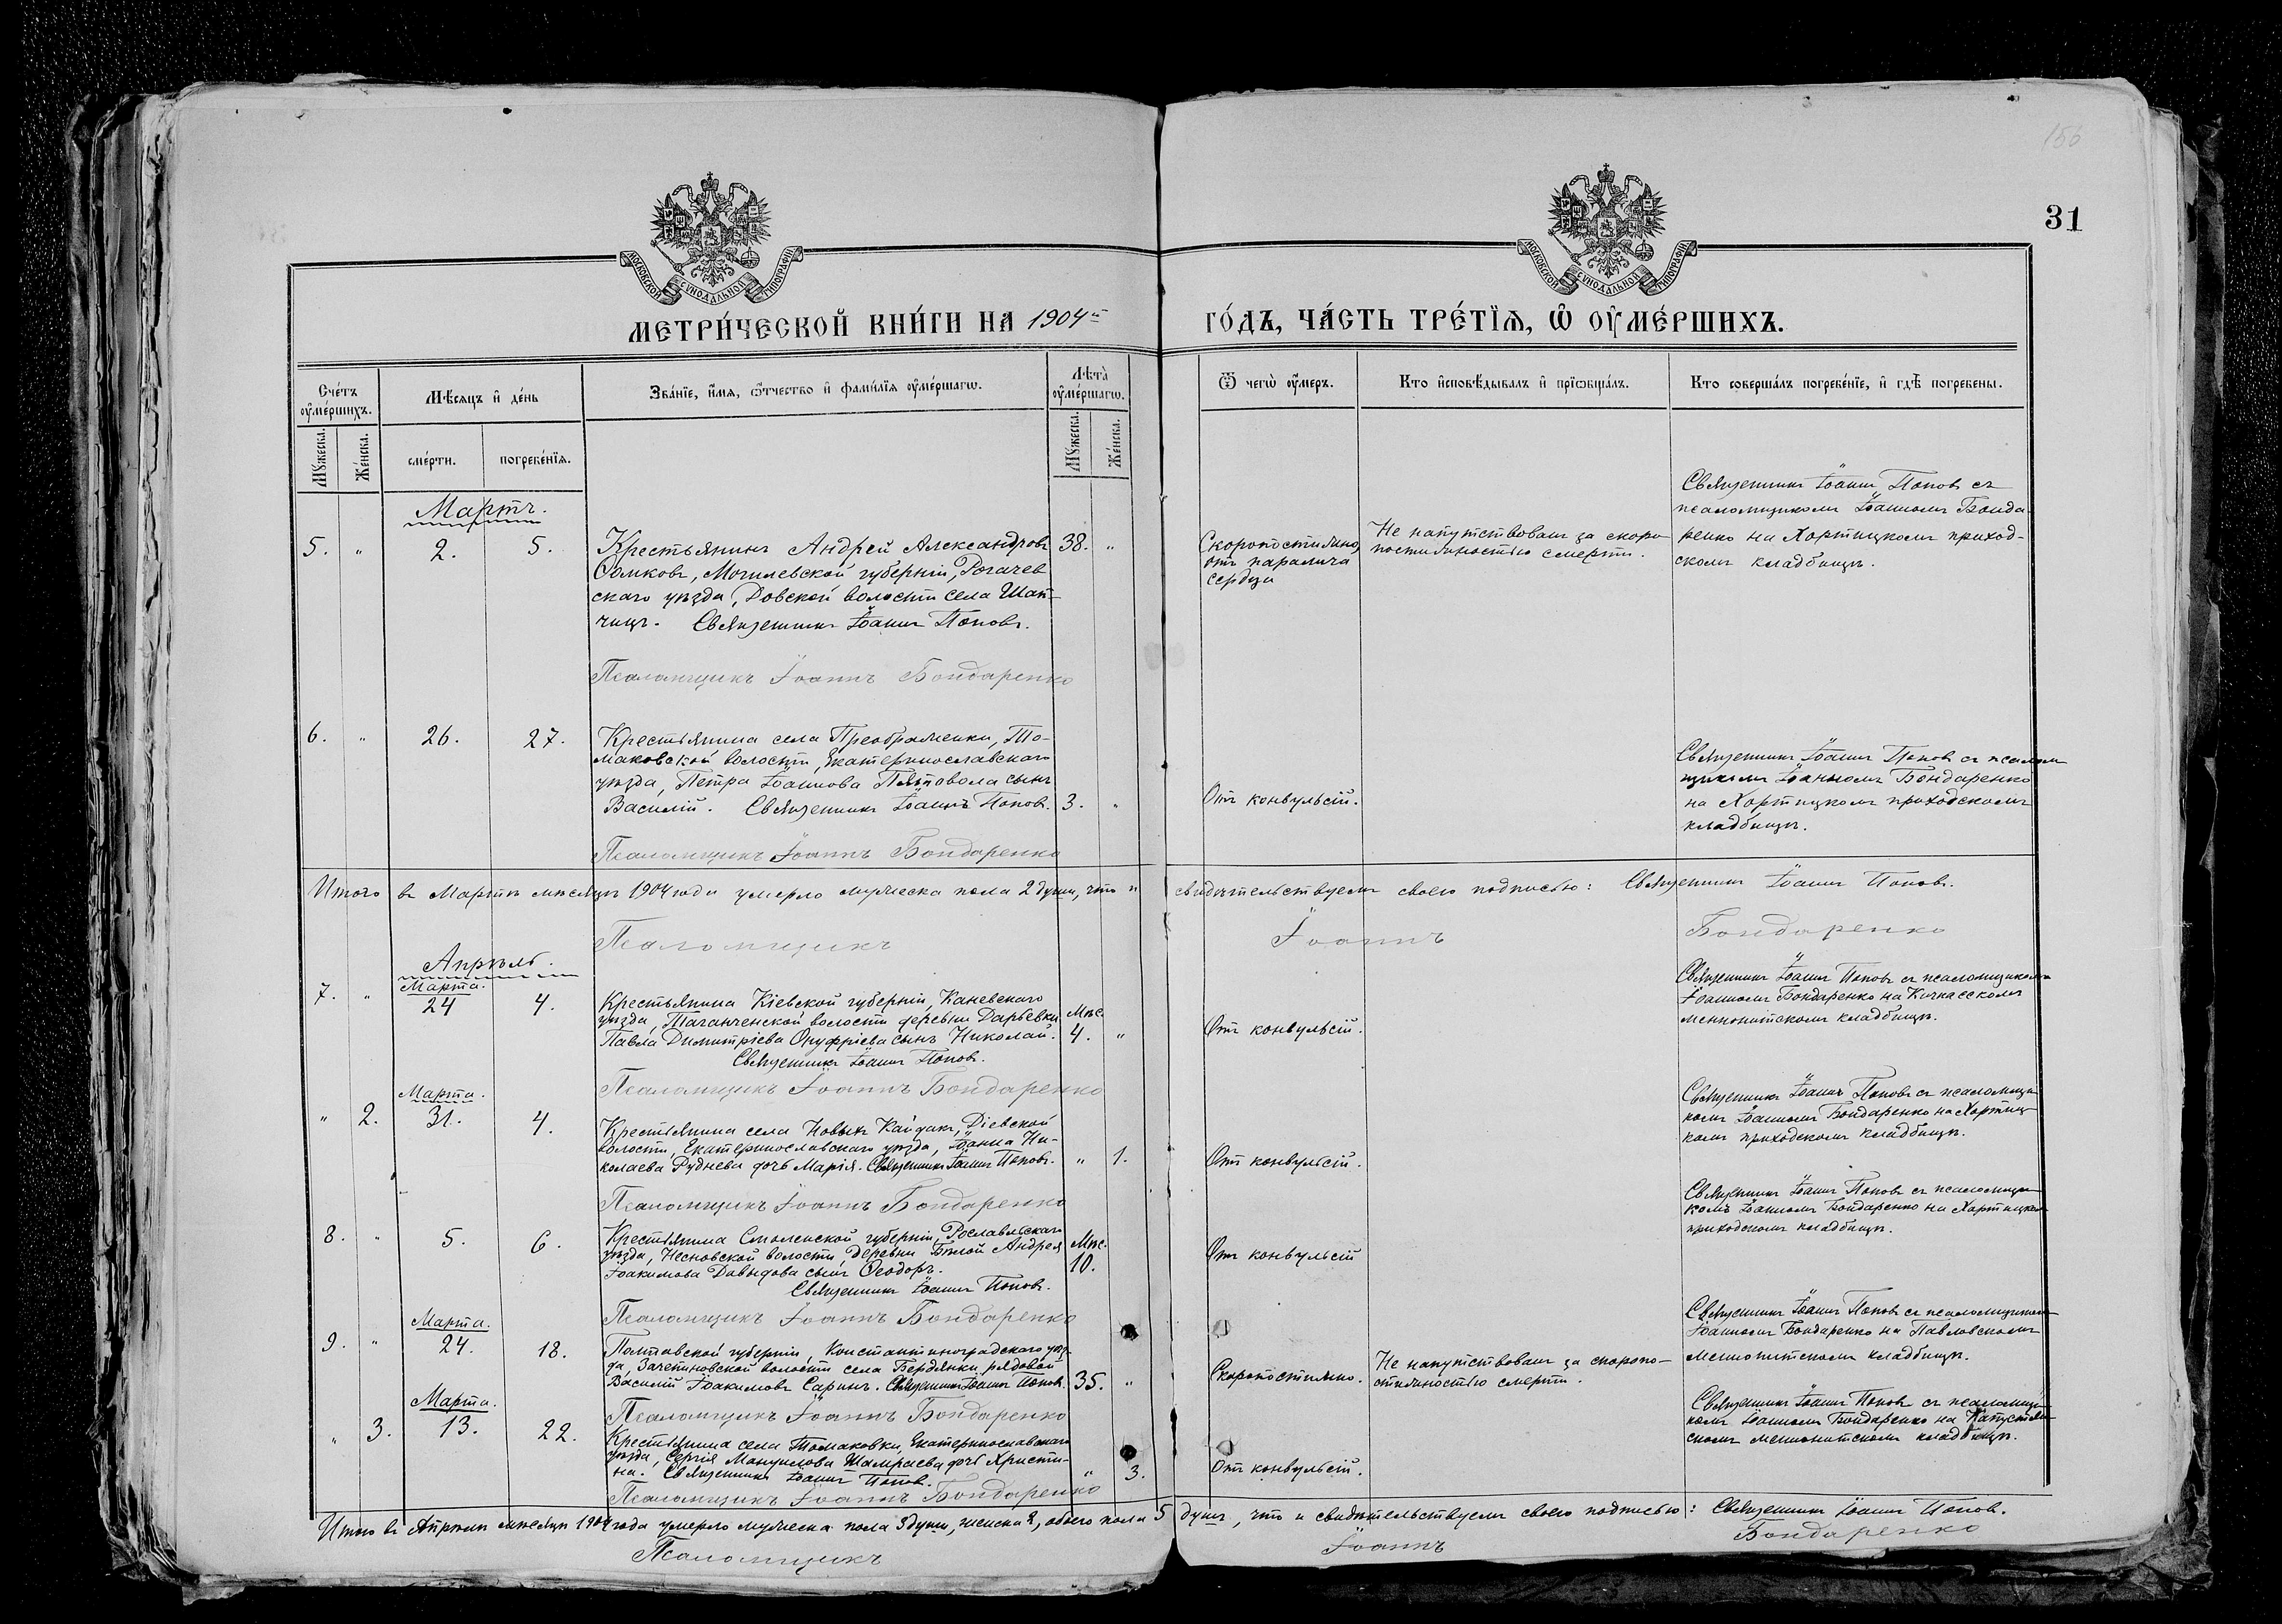 156
31
МОСКОВСКОЙ СѴНОДАЛЬНОЙ ТИПОГРАФІИ
МОСКОВСКОЙ СѴНОДАЛЬНОЙ ТИПОГРАФІИ
МЕТРИ́ЧЕСКОЙ КНИ́ГИ НА 1904й ГО́ДЪ, ЧА́СТЬ ТРЕ́ТЇѦ, Ѡ҆ ОУ҆МЕ́РШИХЪ.
Сче́тъ оу҆ме́ршихъ.
Мѣ́сяцъ и҆ де́нь
Зва́нїе, и҆́мѧ, ѻ҆́тчество и҆ фами́лїѧ оу҆ме́ршагѡ.
Лѣта̀ оу҆ме́ршагѡ.
Ѿ чегѡ̀ оу҆́меръ.
Кто̀ и҆сповѣ́дывалъ и҆ прїѡбща́лъ.
Кто̀ соверша́лъ погребе́нїе, и҆ гдѣ̀ погребены̀.
Мꙋ́жеска.
Же́нска.
сме́рти.
погребе́нїѧ.
Мꙋ́жеска.
Же́нска.
Мартъ.
5. " 2. 5.
Крестьянинъ Андрей Александровъ 38. "
Сомковъ, Могилевской губерніи, Рогачев
скаго уѣзда, Довской волости села Шап-
чицъ. Священникъ Іоаннъ Поповъ.
Псаломщикъ Іоаннъ Бондаренко
Скоропостижно,
отъ паралича
сердца
Не напутствованъ за скоро
постижностью смерти.
Священникъ Іоаннъ Поповъ съ
псаломщикомъ Іоанномъ Бонда
ренко на Хортицкомъ приход-
скомъ кладбищѣ.
6. " 26. 27.
Крестьянина села Преображенки, То-
маковской волости, Екатеринославскаго
уѣзда, Петра Іоаннова сынъ
Василій. Священникъ Іоаннъ Поповъ. 3. "
Псаломщикъ Іоаннъ Бондаренко
Отъ конвульсій.
Священникъ Іоаннъ Поповъ съ псалом
щикомъ Іоанномъ Бондаренко
на Хортицкомъ приходскомъ
кладбищѣ.
Итого въ Мартѣ мѣсяцѣ 1904 года умерло мужеска пола 2 души, что и свидѣтельствуемъ своею подписью: Священникъ Іоаннъ Поповъ.
Псаломщикъ Іоаннъ Бондаренко
Апрѣль.
Марта.
7. " 24 4.
Крестьянина Кіевской губерніи, Каневскаго
уѣзда, Таганченской волости деревни Дарьевки Мѣс.
Павла Димитріева Онуфріева сынъ Николай. 4. "
Священникъ Іоаннъ Поповъ.
Псаломщикъ Іоаннъ Бондаренко
Отъ конвульсій.
Священникъ Іоаннъ Поповъ съ псаломщикомъ
Іоанномъ Бондаренко на Кичкасскомъ
меннонитскомъ кладбищѣ.
Марта.
" 2. 31. 4.
Крестьянина села Новыхъ Кайдакъ, Діевской
волости, Екатеринославскаго уѣзда, Іоанна Ни-
колаева Руднева дочь Марія. Священникъ Іоаннъ Поповъ. " 1.
Псаломщикъ Іоаннъ Бондаренко
Отъ конвульсій.
Священникъ Іоаннъ Поповъ съ псаломщи
комъ Іоанномъ Бондаренко на Хортиц-
комъ приходскомъ кладбищѣ.
8. " 5. 6.
Крестьянина Смоленской губерніи, Рославльскаго
уѣзда, волости, деревни Бѣлой Андрея Мѣс.
Іоакимова Давыдова сынъ Ѳеодоръ. 10.
Священникъ Іоаннъ Поповъ.
Псаломщикъ Іоаннъ Бондаренко
Отъ конвульсій
Священникъ Іоаннъ Поповъ съ псаломщи
комъ Іоанномъ Бондаренко на Хортицкомъ
приходскомъ кладбищѣ.
Марта.
9. " 24. 18.
Полтавской губерніи, Константиноградскаго уѣз
да, волости села Бердянки рядовой
Василій Іоакимовъ Саринъ. Священникъ Іоаннъ Поповъ. 35. "
Псаломщикъ Іоаннъ Бондаренко
Скоропостижно.
Не напутствованъ за скоропо-
стижностью смерти.
Священникъ Іоаннъ Поповъ съ псаломщикомъ
Іоанномъ Бондаренко на Павловскомъ
меннонитскомъ кладбищѣ.
Марта.
" 3. 13. 22.
Крестьянина села Томаковки, Екатеринославскаго
уѣзда, Сергія Мануилова Шамраева дочь Христи-
на. Священникъ Іоаннъ Поповъ. " 3.
Псаломщикъ Іоаннъ Бондаренко
Отъ конвульсій.
Священникъ Іоаннъ Поповъ съ псаломщи
комъ Іоанномъ Бондаренко на
скомъ меннонитскомъ кладбищѣ.
Итого въ Апрѣлѣ мѣсяцѣ 1904 года умерло мужеска пола 3 души, женска 2, обоего пола 5 душъ, что и свидѣтельствуемъ своею подписью: Священникъ Іоаннъ Поповъ.
Псаломщикъ Іоаннъ Бондаренко